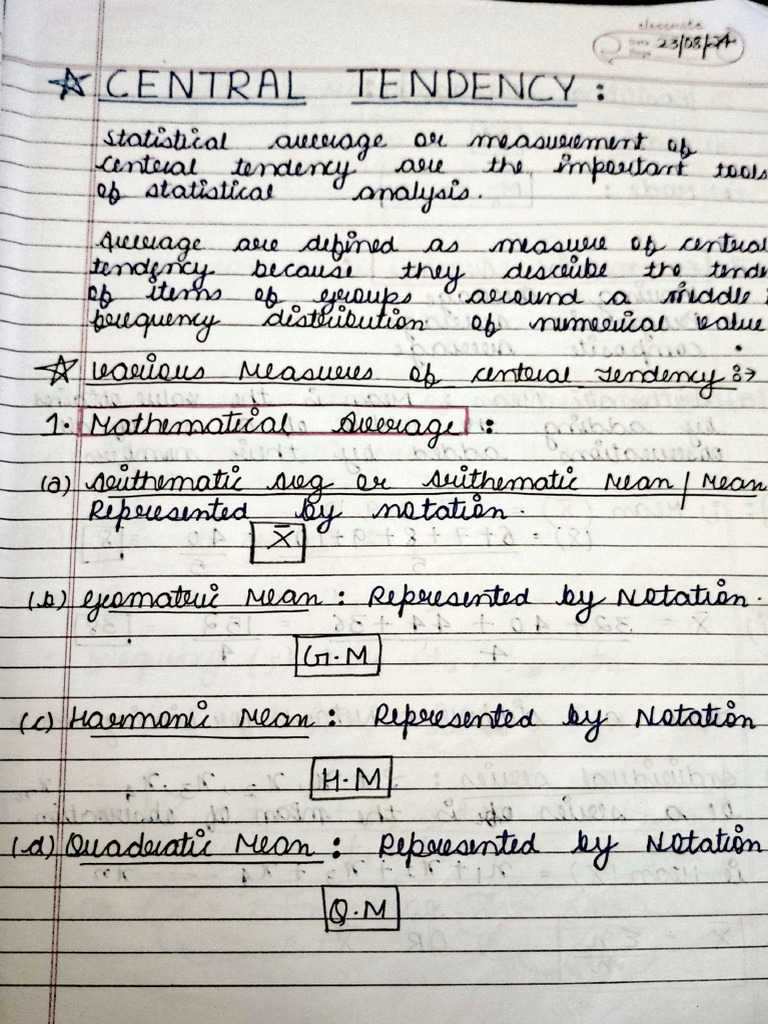 23/08/24
☆ CENTRAL TENDENCY :
Statistical average or measurement of
central tendency are the important tools
of statistical analysis.
Average are defined as measure of central
tendency because they describe the tend
of items of groups around a middle
frequency distribution of numerical value
☆ Various Measures of central Tendency :→
1. Mathematical Average :
(a) Arithmatic Avg or Arithematic Mean / Mean
Represented by notation.
X̄
(b) Geomatric Mean : Represented by Notation.
G.M
(c) Harmonic Mean : Represented by Notation
H.M
(d) Quadratic Mean : Represented by Notation
Q.M